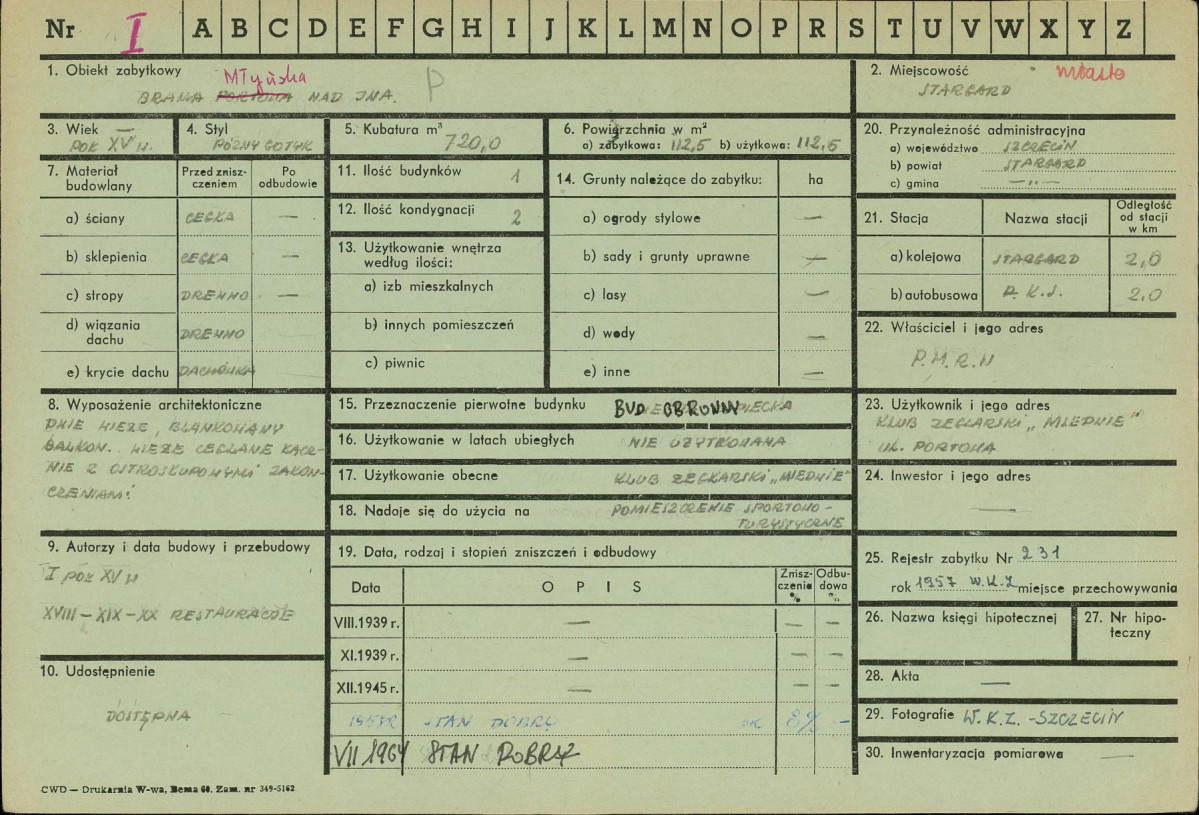 Nr I A B C D E F G H I J K L M N O P R S T U V W X Y Z
1. Obiekt zabytkowy
Młyńska
BRAMA PORTOWA NAD INĄ. P
2. Miejscowość miasto
STARGARD
3. Wiek
POŁ XV W.
4. Styl
PÓŹNY GOTYK
5. Kubatura m³
720,0
6. Powierzchnia w m²
a) zabytkowa: 112,5 b) użytkowa: 112,5
20. Przynależność administracyjna
a) województwo SZCZECIN
b) powiat STARGARD
c) gmina —„—
7. Materiał budowlany
Przed zniszczeniem
Po odbudowie
a) ściany CEGŁA —
b) sklepienia CEGŁA —
c) stropy DREWNO —
d) wiązania dachu DREWNO
e) krycie dachu DACHÓWKA
11. Ilość budynków 1
12. Ilość kondygnacji 2
13. Użytkowanie wnętrza
według ilości:
a) izb mieszkalnych
b) innych pomieszczeń
c) piwnic
14. Grunty należące do zabytku: ha
a) ogrody stylowe —
b) sady i grunty uprawne —
c) lasy —
d) wody —
e) inne —
21. Stacja
Nazwa stacji
Odległość od stacji w km
a) kolejowa STARGARD 2,0
b) autobusowa P.K.S. 2,0
22. Właściciel i jego adres
P.M.R.N
8. Wyposażenie architektoniczne
DWIE WIEŻE, BLANKOWANY
BALKON. WIEŻE CEGLANE ŁĄCZ-
NIE Z OSTROSŁUPOWYMI ZAKOŃ-
CZENIAMI
15. Przeznaczenie pierwotne budynku BUD OBRONN
16. Użytkowanie w latach ubiegłych NIE UŻYTKOWANA
17. Użytkowanie obecne KLUB ŻEGLARSKI „MIEDWIE"
18. Nadaje się do użycia na POMIESZCZENIE SPORTOWO-
TURYSTYCZNE
23. Użytkownik i jego adres
KLUB ŻEGLARSKI „MIEDWIE"
UL. PORTOWA
24. Inwestor i jego adres
—
9. Autorzy i data budowy i przebudowy
I POŁ XV W
XVIII – XIX – XX RESTAURACJE
10. Udostępnienie
DOSTĘPNA
19. Data, rodzaj i stopień zniszczeń i odbudowy
Data
O P I S
Zniszczenie %
Odbudowa %
VIII.1939 r. — — —
XI.1939 r. — — —
XII.1945 r. — — —
1957R STAN DOBRY OK 8% —
VII 1964 STAN DOBRY
25. Rejestr zabytku Nr 231
rok 1957 W.K.Z miejsce przechowywania
26. Nazwa księgi hipotecznej
27. Nr hipoteczny
28. Akta —
29. Fotografie W.K.Z. - SZCZECIN
30. Inwentaryzacja pomiarowa —
CWD — Drukarnia W-wa, Bema 60. Zam. nr 349-5162